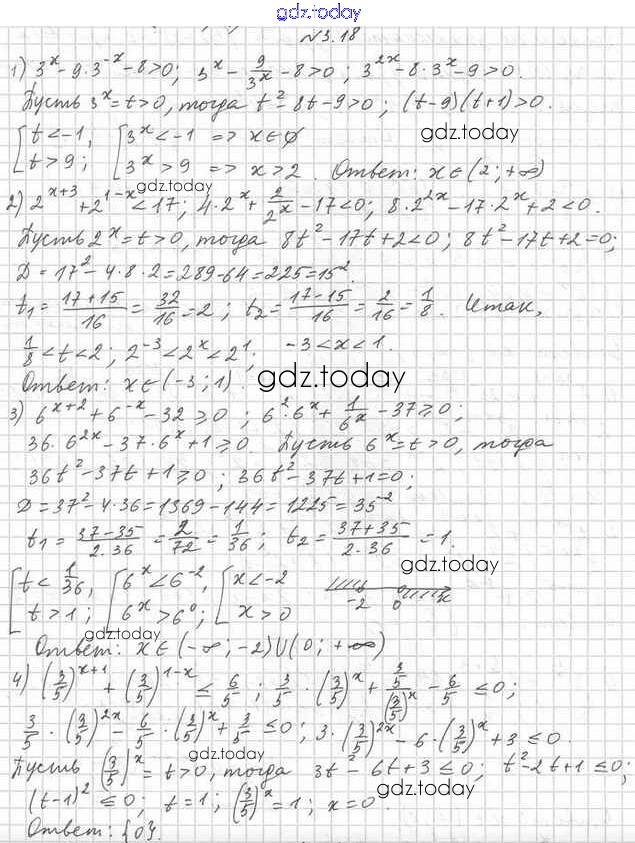 gdz.today
№3.18
1) 3^x - 9·3^-x - 8 > 0; 3^x - 9/3^x - 8 > 0; 3^2x - 8·3^x - 9 > 0.
Пусть 3^x = t > 0, тогда t² - 8t - 9 > 0; (t-9)(t+1) > 0.
[ t < -1, [ 3^x < -1 => x ∈ ∅ gdz.today
t > 9; 3^x > 9 => x > 2. Ответ: x ∈ (2; +∞)
gdz.today
2) 2^(x+3) + 2^(1-x) < 17; 4·2^x + 2/2^x - 17 < 0; 8·2^2x - 17·2^x + 2 < 0.
Пусть 2^x = t > 0, тогда 8t² - 17t + 2 < 0; 8t² - 17t + 2 = 0;
D = 17² - 4·8·2 = 289 - 64 = 225 = 15².
t₁ = (17+15)/16 = 32/16 = 2; t₂ = (17-15)/16 = 2/16 = 1/8. Итак,
1/8 < t < 2; 2^-3 < 2^x < 2^1; -3 < x < 1.
Ответ: x ∈ (-3; 1). gdz.today
3) 6^(x+2) + 6^-x - 32 ≥ 0; 6²·6^x + 1/6^x - 37 ≥ 0;
36·6^2x - 37·6^x + 1 ≥ 0 Пусть 6^x = t > 0, тогда
36t² - 37t + 1 ≥ 0; 36t² - 37t + 1 = 0;
D = 37² - 4·36 = 1369 - 144 = 1225 = 35²
t₁ = (37-35)/(2·36) = 2/72 = 1/36; t₂ = (37+35)/(2·36) = 1.
gdz.today
[ t < 1/36, [ 6^x < 6^-2, [ x < -2
t > 1; 6^x > 6^0; x > 0 -2 0 x
gdz.today
Ответ: x ∈ (-∞; -2) ∪ (0; +∞)
4) (3/5)^(x+1) + (3/5)^(1-x) ≤ 6/5; 3/5·(3/5)^x + (3/5)/(3/5)^x - 6/5 ≤ 0;
3/5·(3/5)^2x - 6/5·(3/5)^x + 3/5 ≤ 0; 3·(3/5)^2x - 6·(3/5)^x + 3 ≤ 0.
gdz.today
Пусть (3/5)^x = t > 0, тогда 3t² - 6t + 3 ≤ 0; t² - 2t + 1 ≤ 0;
(t-1)² ≤ 0; t = 1; (3/5)^x = 1; x = 0 gdz.today
Ответ: {0}.